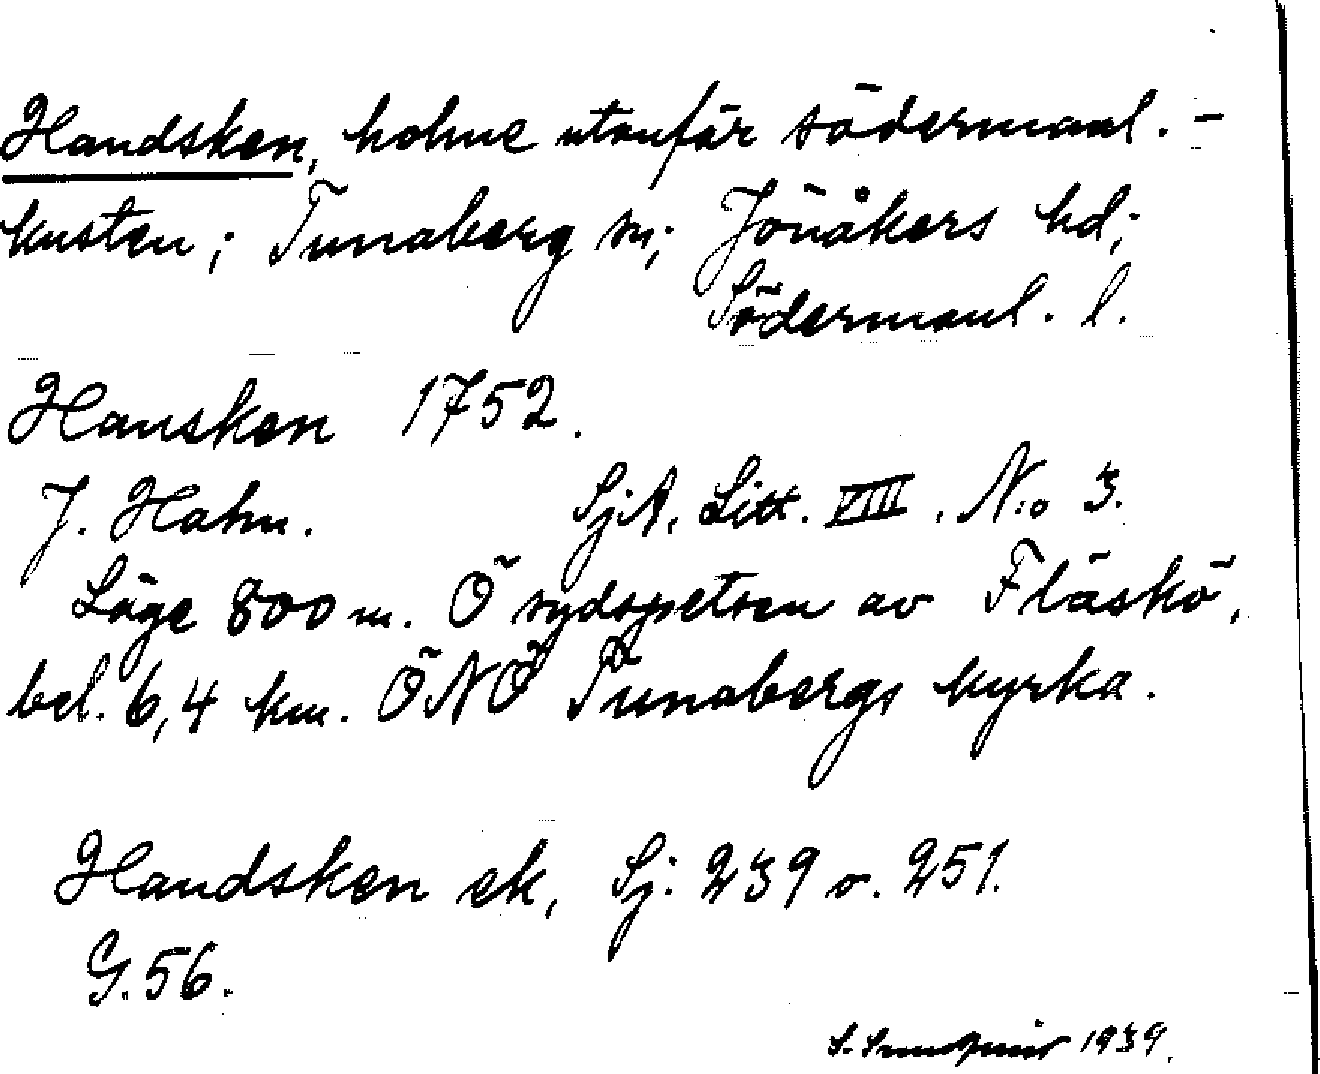 Handsken, holme utanför södermanl. -
kusten; Tunaberg sn; Jönåkers hd;
Södermanl. l.
Hansken 1752.
J. Hahn. SjA. Litt. VIII. N:o 3.
Läge 800 m. Ö sydspetsen av Fläskö,
bel. 6,4 km. ÖNÖ Tunabergs kyrka.
Handsken ek, Sj. 239 o. 251.
G. 56.
1939.